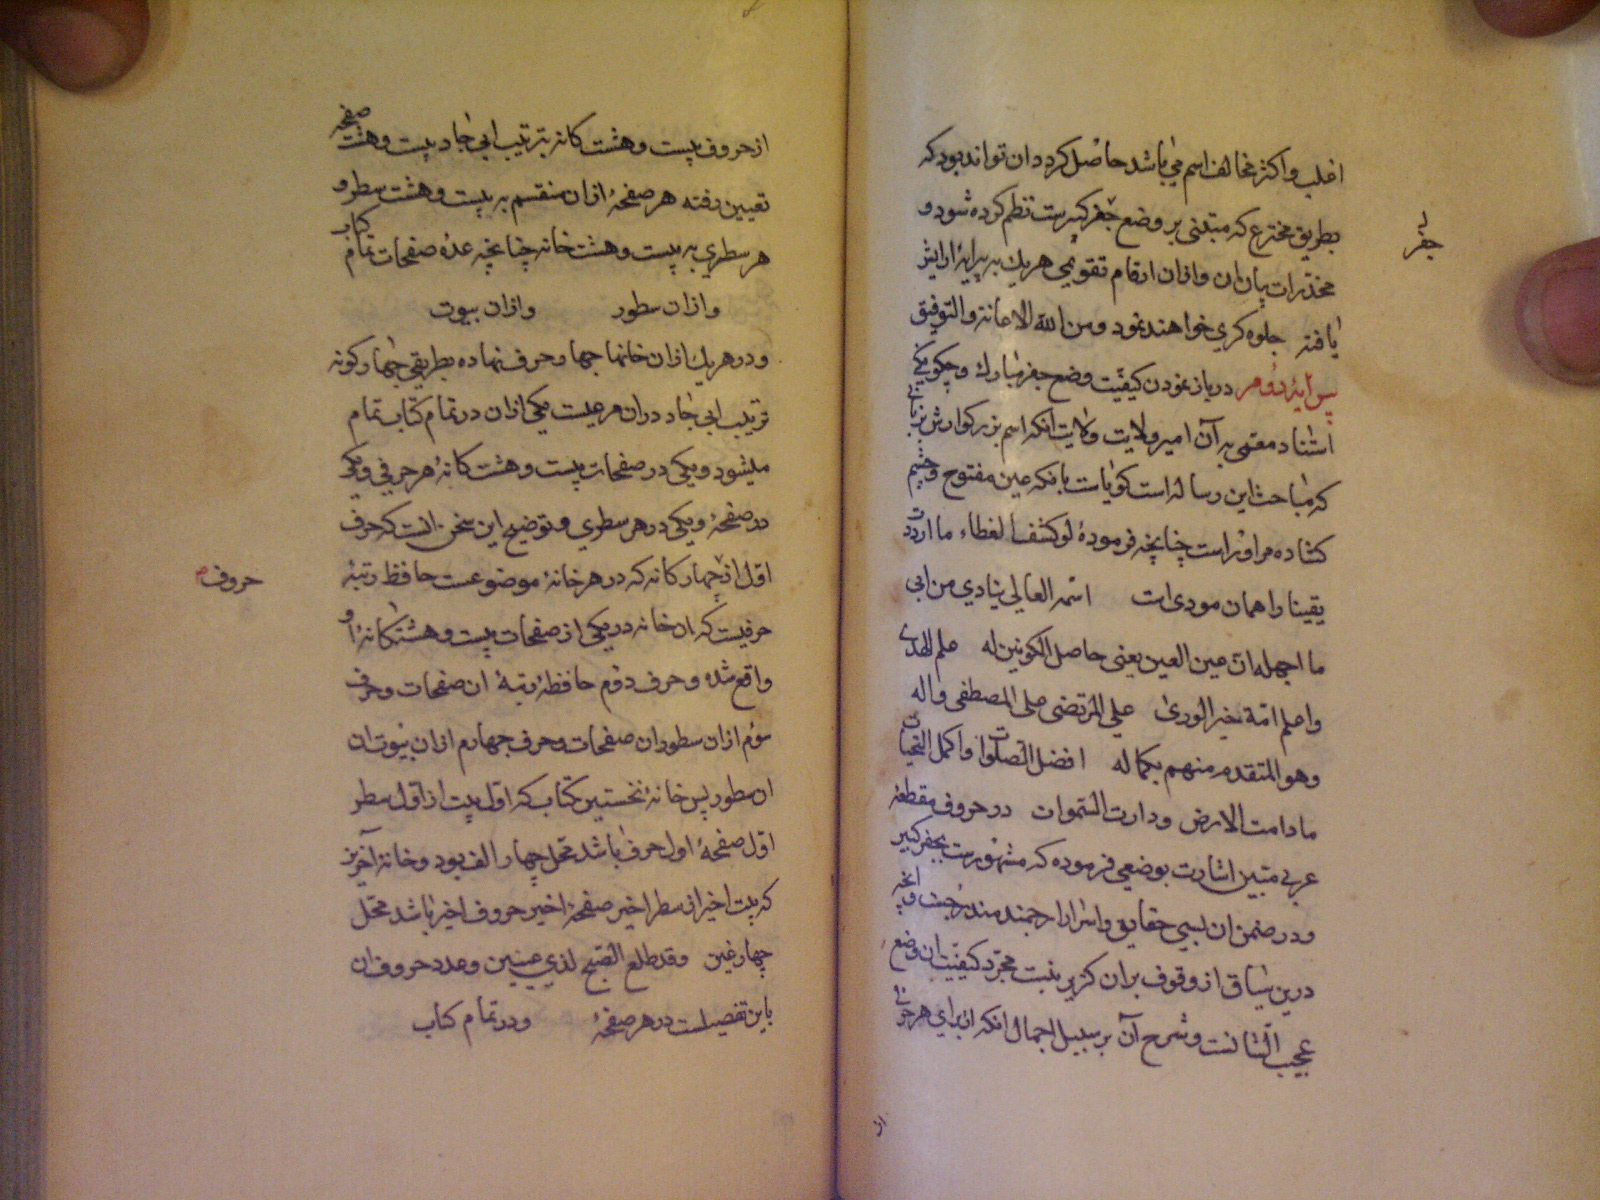 اغلب و اکثر مخالف اسم می باشد حاصل کرد و ان تواند بود که
بطریق مخترع که مبتنی بر وضع جفر کبیرست نظم کرده شود و
جفر
مخدرات بیان ان و ازان ارقام تقویمی هریك به پیرایۀ ارایش
یافته جلوه کری خواهند نمود و من الله الاعانة والتوفیق
پیرایۀ دوم در باز نمودن کیفیت وضع جفر مبارك و چکونکی
اسناد معتمی به آن امیر ولایت و کایت انکه اسم بزرکوارش
که مباحث این رساله است کویاست بانکه عین مفتوح و چشم
کشاده مر او راست چنانچه فرمودۀ لو کشف الغطاء ما ازددت
یقینا واهمان مودی است اسمه العالی ینادی من ابی
ما اجمله ان عین العین یعنی حاصل الکونین له علم الهدی
واعلم امة بخیر الوری علی المرتضی صلی المصطفی واله
وهو المتقدم منهم بکماله افضل الصلوات واکمل التحیات
مادامت الارض ودارت السموات در حروف مقطعه
عربی مبین اشارت بوضعی فرموده که مشهورست بجفر کبیر
و در ضمن ان بسی حقایق و اسرار ارجمند مندرجست و انچه
درین سیاق از وقوف بران کزیر نیست مجرد کیفیت ان وضع
عجیب الشانست و شرح آن بر سبیل اجمال انکه از برای هر حرفی
از
از حروف بیست و هشت کانه بترتیب ابی جاد بیست و هشت صفحه
تعیین رفته هر صفحۀ ازان منقسم به بیست و هشت سطر و
هر سطری به بیست و هشت خانه چنانچه عدۀ صفحات تمام کتاب
و ازان سطور و ازان بیوت
و در هریك ازان خانها چهار حرف نهاده بطریقی چهار کونه
ترتیب ابی جاد دران مرعیست یکی ازان در تمام کتاب تمام
میشود و یکی در صفحات بیست و هشت کانۀ هر حرفی و یکی
در صفحۀ و یکی در هر سطری و توضیح این سخن انست که حرف
اول از چهار کانه که در هر خانۀ موضوعست حافظ رتبۀ
حروف
حرفیست که ان خانه در یکی از صفحات بیست و هشتکانۀ او
واقع شده و حرف دوم حافظ رتبۀ ان صفحات و حرف
سوم ازان سطور ان صفحات و حرف چهارم ازان بیوت ان
ان سطور پس خانۀ نخستین کتاب که اول بیت از اول سطر
اول صفحۀ اول حرف باشد محل چهار الف بود و خانۀ آخرین
که بیت اخیر از سطر اخیر صفحۀ اخیر حروف اخیر باشد محل
چهار غین وقد طلع الصبح لذی عینین و عدد حروف ان
باین تفصیلست در هر صفحۀ و در تمام کتاب